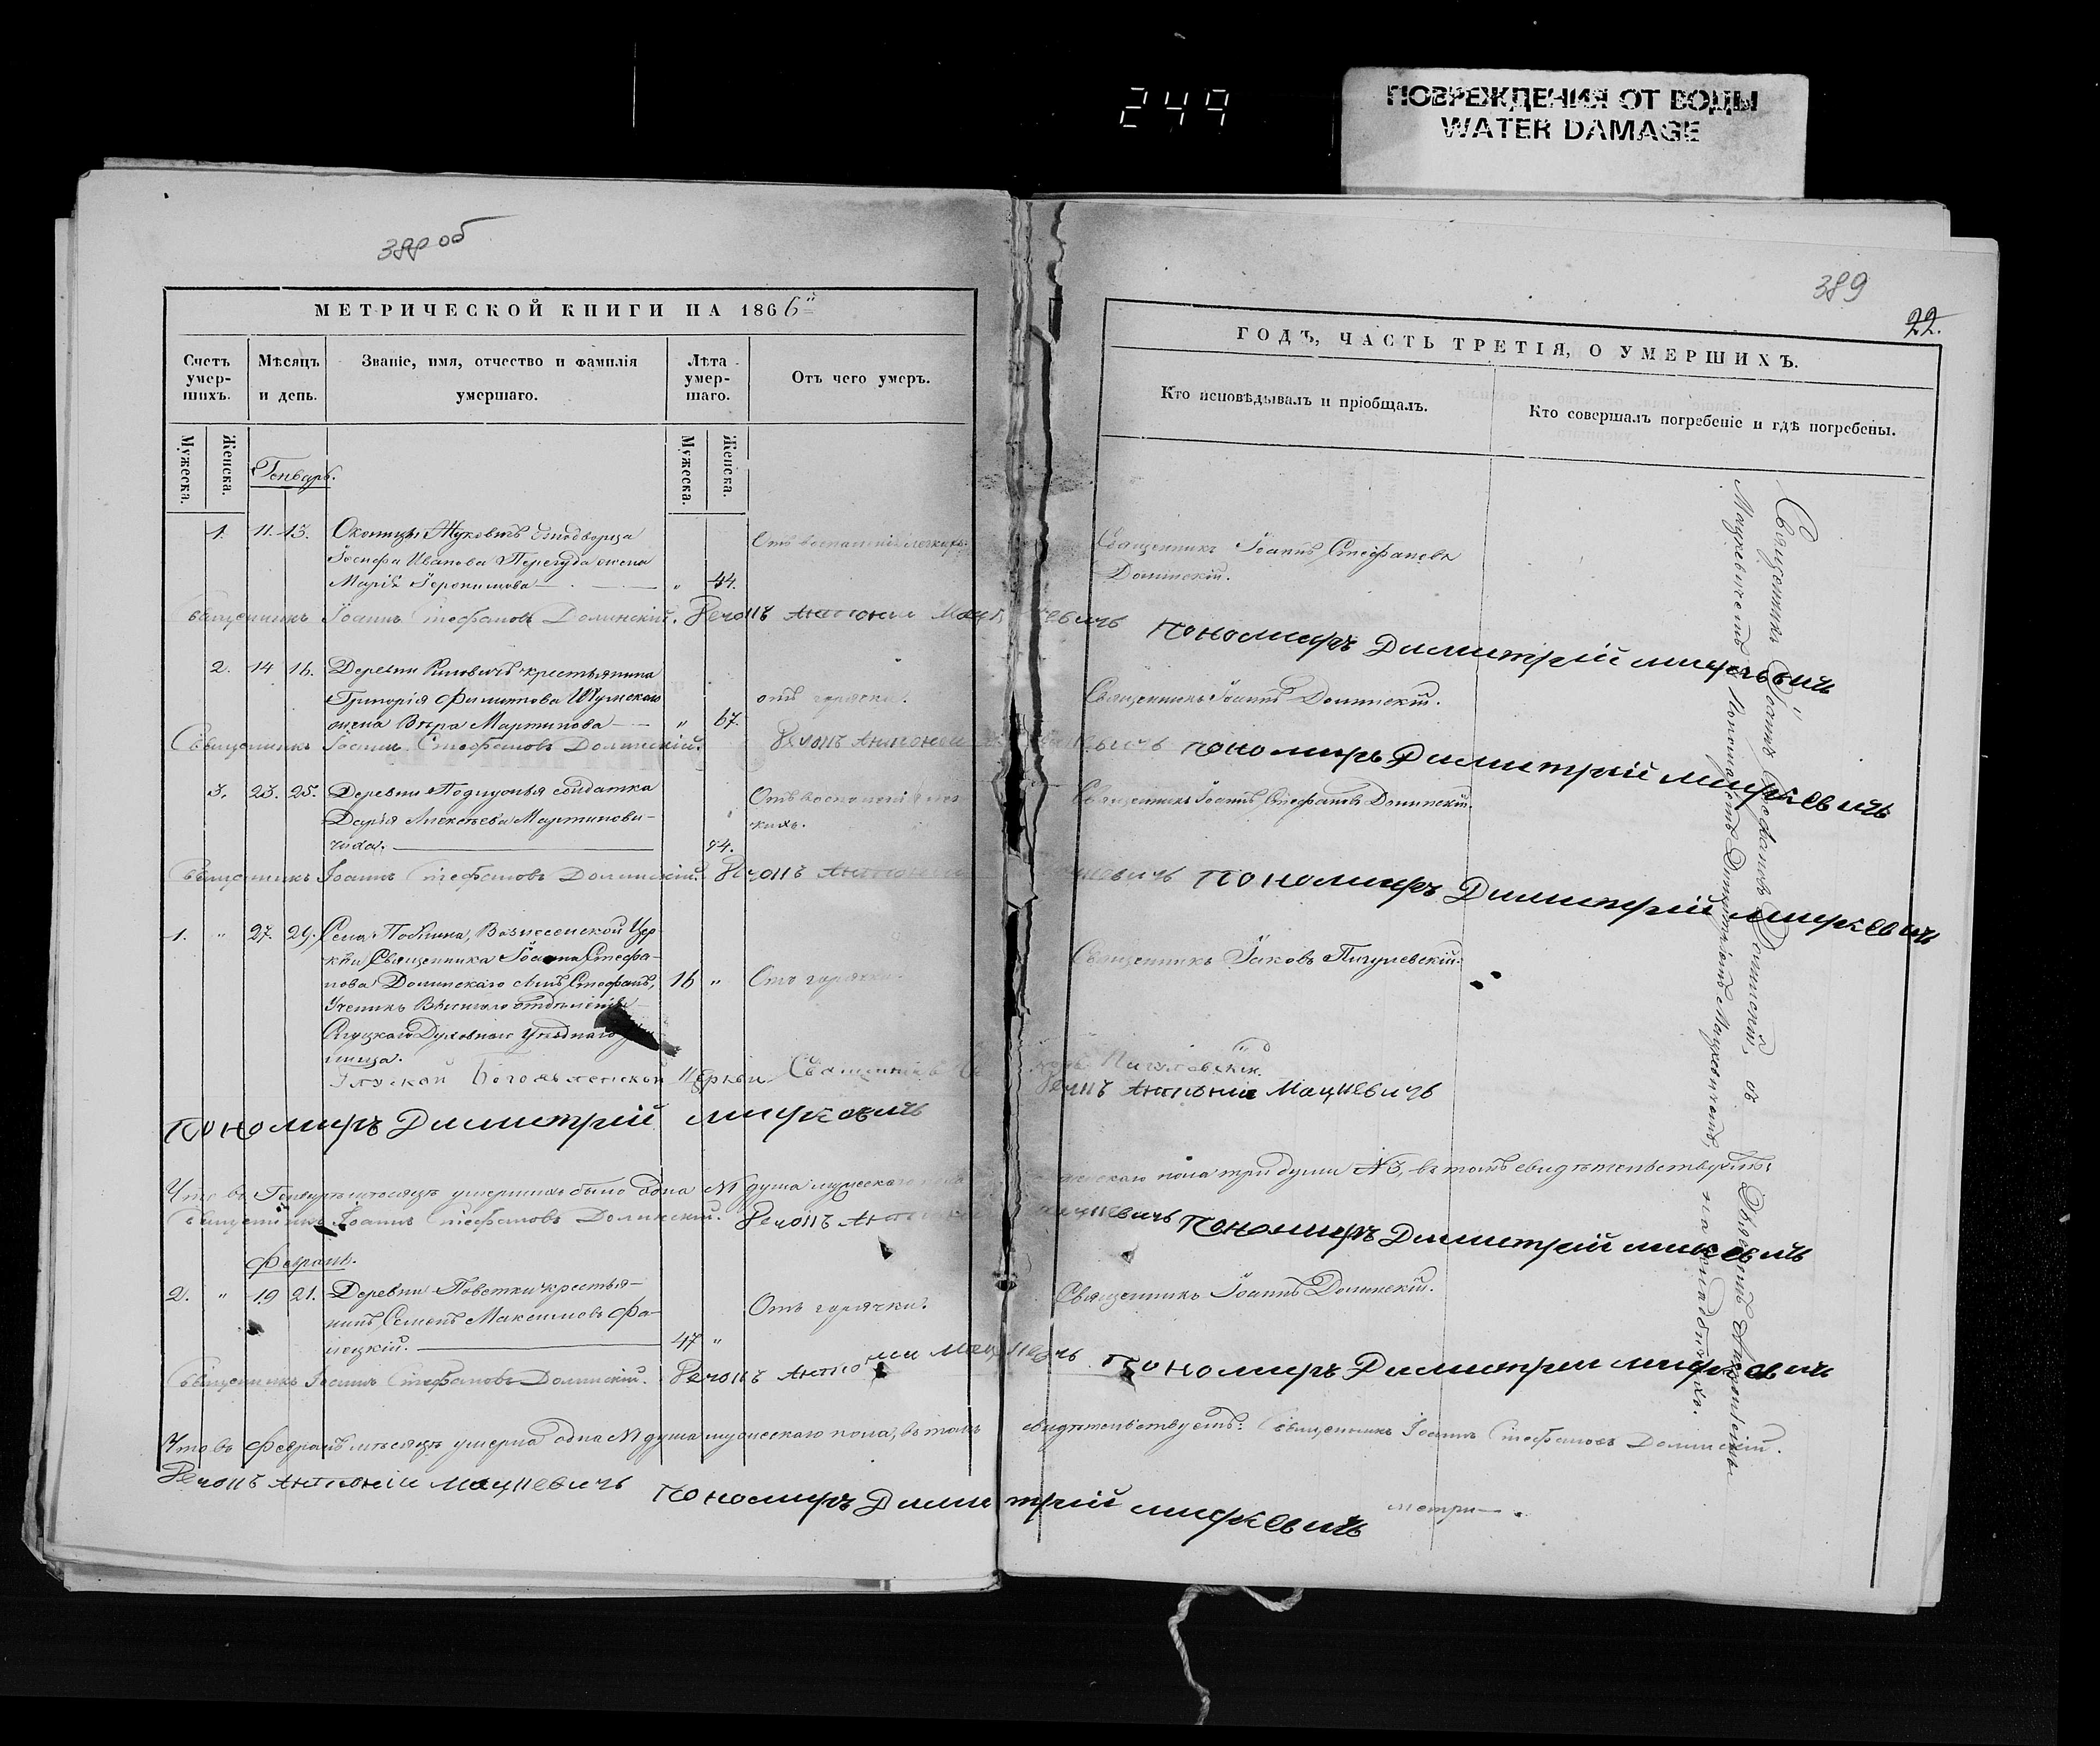 249
ПОВРЕЖДЕНИЯ ОТ ВОДЫ
WATER DAMAGE
388 об
МЕТРИЧЕСКОЙ КНИГИ НА 1866й
Счетъ умер-шихъ.
Мѣсяцъ и день.
Званіе, имя, отчество и фамилія умершаго.
Лѣта умер-шаго.
Отъ чего умеръ.
Мужеска.
Женска.
Мужеска.
Женска.
Генварь.
1. 11. 13. Околицы Жуковичъ однодворца
Іосифа Иванова Перегуда жена
Марія Іеронимова " 44.
Отъ воспаленія легкихъ.
Священникъ Іоаннъ Стефановъ Долинскій. Дьячокъ Антоній
2. 14 16. Деревни крестьянина
Григорія Филиппова Шумскаго
жена Вѣра Мартинова " 67.
отъ горячки.
Священникъ Іоаннъ Стефановъ Долинскій. Дьячокъ Антоній
3. 23. 25. Деревни солдатка
Дарія Алексѣева Мартинови-
чева. 74.
Отъ воспаленія лег
кихъ.
Священникъ Іоаннъ Стефановъ Долинскій. Дьячокъ Антоній
1. " 27. 29. Села Вознесенской Цер-
кви Священника Іоанна Стефа-
нова Долинскаго сынъ Стефанъ,
Ученикъ Высшаго отдѣленія
Слуцкаго Духовнаго Уѣзднаго
лища.
16 " Отъ горячки.
Глуской Богоявленской Церкви Священникъ
Пономарь Димитрій Мицкевичъ
Что въ Генварѣ мѣсяцѣ умершихъ было одна №1 душа мужескаго пола
Священникъ Іоаннъ Стефановъ Долинскій. Дьячокъ Антоній
Февраль.
2. " 19 21. Деревни Поветки крестья-
нинъ Семенъ Максимовъ
47 "
Отъ горячки.
Священникъ Іоаннъ Стефановъ Долинскій. Дьячокъ Антоній Мацкевичъ
Что въ Февралѣ мѣсяцѣ умерла одна №1 душа мужескаго пола, въ томъ
Дьячокъ Антоній Мацкевичъ Пономарь Димитрій Мицкевичъ
389
22.
ГОДЪ, ЧАСТЬ ТРЕТІЯ, О УМЕРШИХЪ.
Кто исповѣдывалъ и пріобщалъ.
Кто совершалъ погребеніе и гдѣ погребены.
Священникъ Іоаннъ Стефановъ
Долинскій.
Пономарь Димитрій Мицкевичъ
Священникъ Іоаннъ Долинскій.
Пономарь Димитрій Мицкевичъ
Священникъ Іоаннъ Стефановъ Долинскій.
Пономарь Димитрій Мицкевичъ
Священникъ Іаковъ Пигулевскій.
Дьячокъ Антоній Мацкевичъ
женскаго пола три души №3, въ томъ свидѣтельствуютъ:
Пономарь Димитрій Мицкевичъ
Священникъ Іоаннъ Долинскій.
Пономарь Димитрій Мицкевичъ
свидѣтельствуетъ: Священникъ Іоаннъ Стефановъ Долинскій.
метри
Священникъ Іоаннъ Стефановъ Долинскій, съ
на кладбищахъ.